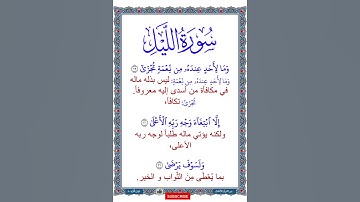 سُورَةُ اللَّيْلِ
وَمَا لِأَحَدٍ عِندَهُۥ مِن نِّعْمَةٍ تُجْزَىٰٓ ١٩
وَمَا لِأَحَدٍ عِندَهُۥ مِن نِّعْمَةٍ: ليس بذله ماله
في مكافأة من أسدى إليه معروفاً.
تُجْزَىٰٓ: تكافأ،
إِلَّا ٱبْتِغَآءَ وَجْهِ رَبِّهِ ٱلْأَعْلَىٰ ٢٠
ولكنه يؤتي ماله طلباً لوجه ربه
الأعلى،
وَلَسَوْفَ يَرْضَىٰ ٢١
بما يُعْطَى مِنَ الثَّواب و الخير.
SUBSCRIBE